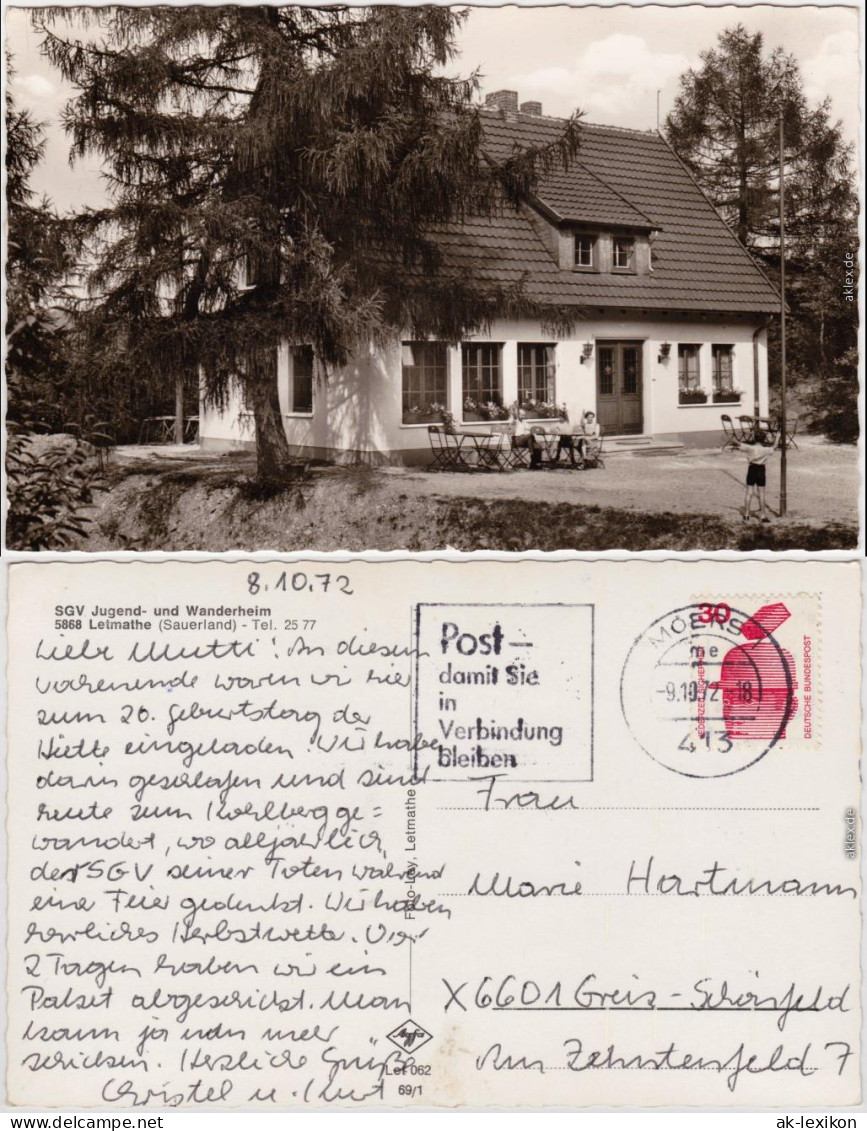 aklex.de
8.10.72
SGV Jugend- und Wanderheim
5868 Letmathe (Sauerland) - Tel. 25 77
Liebe Mutti! An diesem
Wochenende waren wir hier
zum 20. Geburtstag der
Hütte eingeladen. Wir haben
darin geschlafen und sind
heute zum Kohlberg ge=
wandert, wo alljährlich
der SGV seiner Toten während
eine Feier gedenkt. Wir haben
herrliches Herbstwetter. Vor
2 Tagen haben wir ein
Paket abgeschickt. Man
kann ja nun mehr
schicken. Herzliche Grüße
Christel u. Kurt
Post-
damit Sie
in
Verbindung
bleiben
MOERS 1
me
-9.10.72-18
413
30
JEDERZEIT SICHERHEIT
DEUTSCHE BUNDESPOST
Foto-Ley, Letmathe
Agfa
Let 062
69/1
Frau
Marie Hartmann
X6601 Greiz-Schönfeld
Am Zehntenfeld 7
aklex.de
ak-lexikon